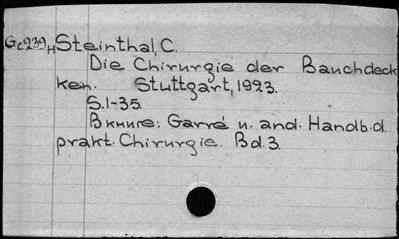 Gc239н Steinthal, C.
Die Chirurgie der Bauchdeck
ken. Stuttgart, 1923.
S.1-35.
В книге: Garré u. and. Handb. d.
prakt. Chirurgie. Bd. 3.